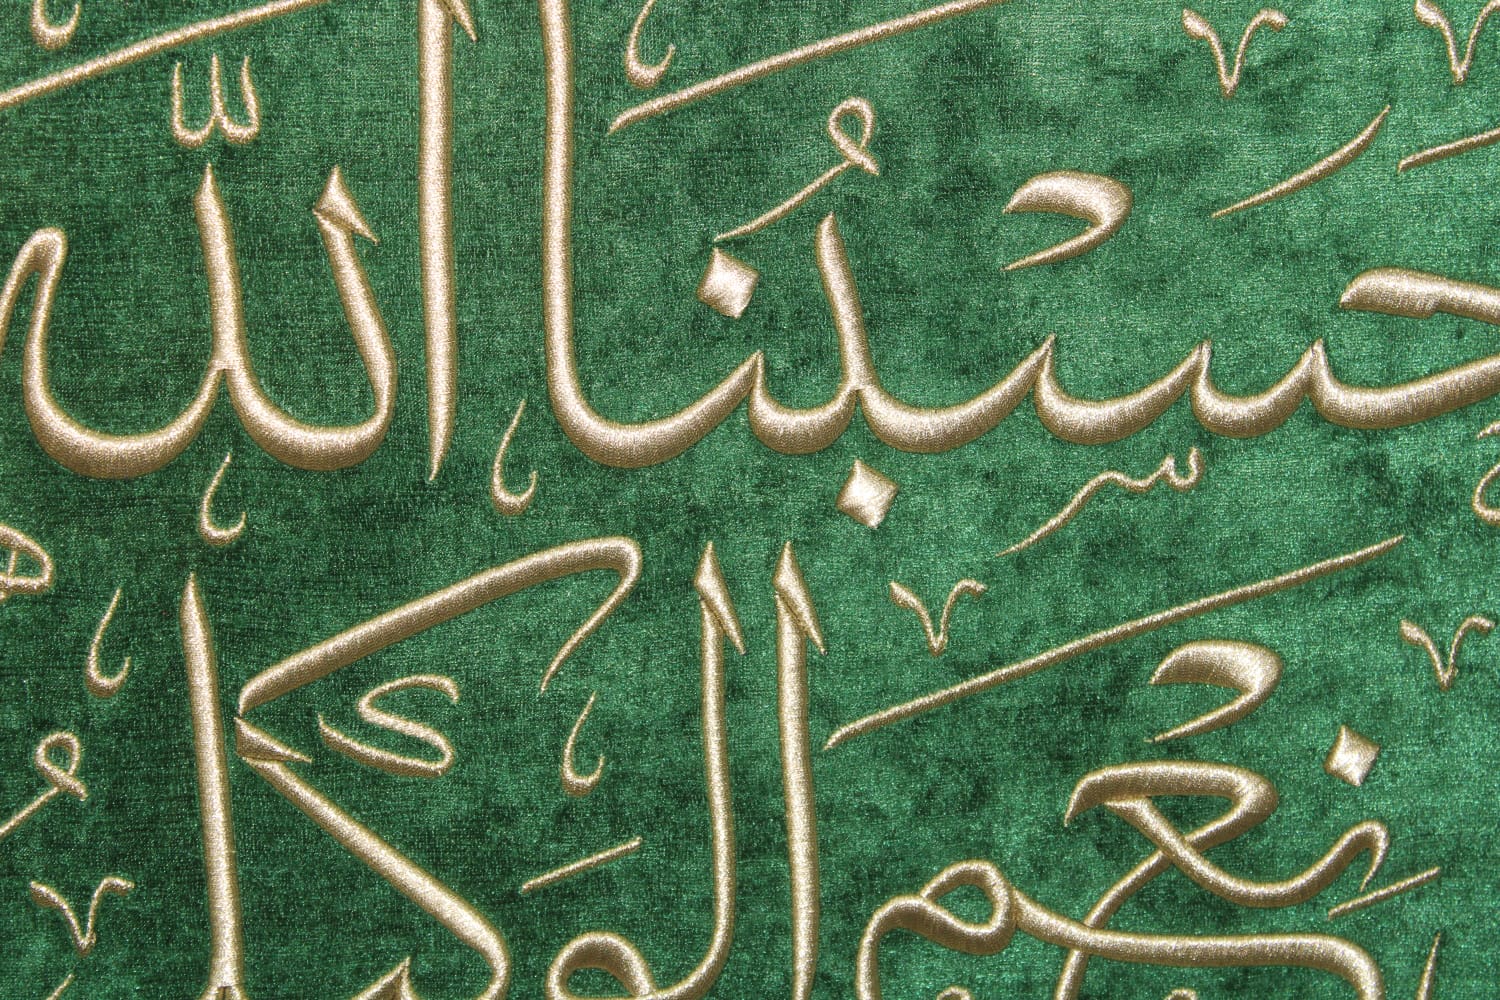 حَسْبُنَا اللّٰه
نِعْمَ الْوَكيل